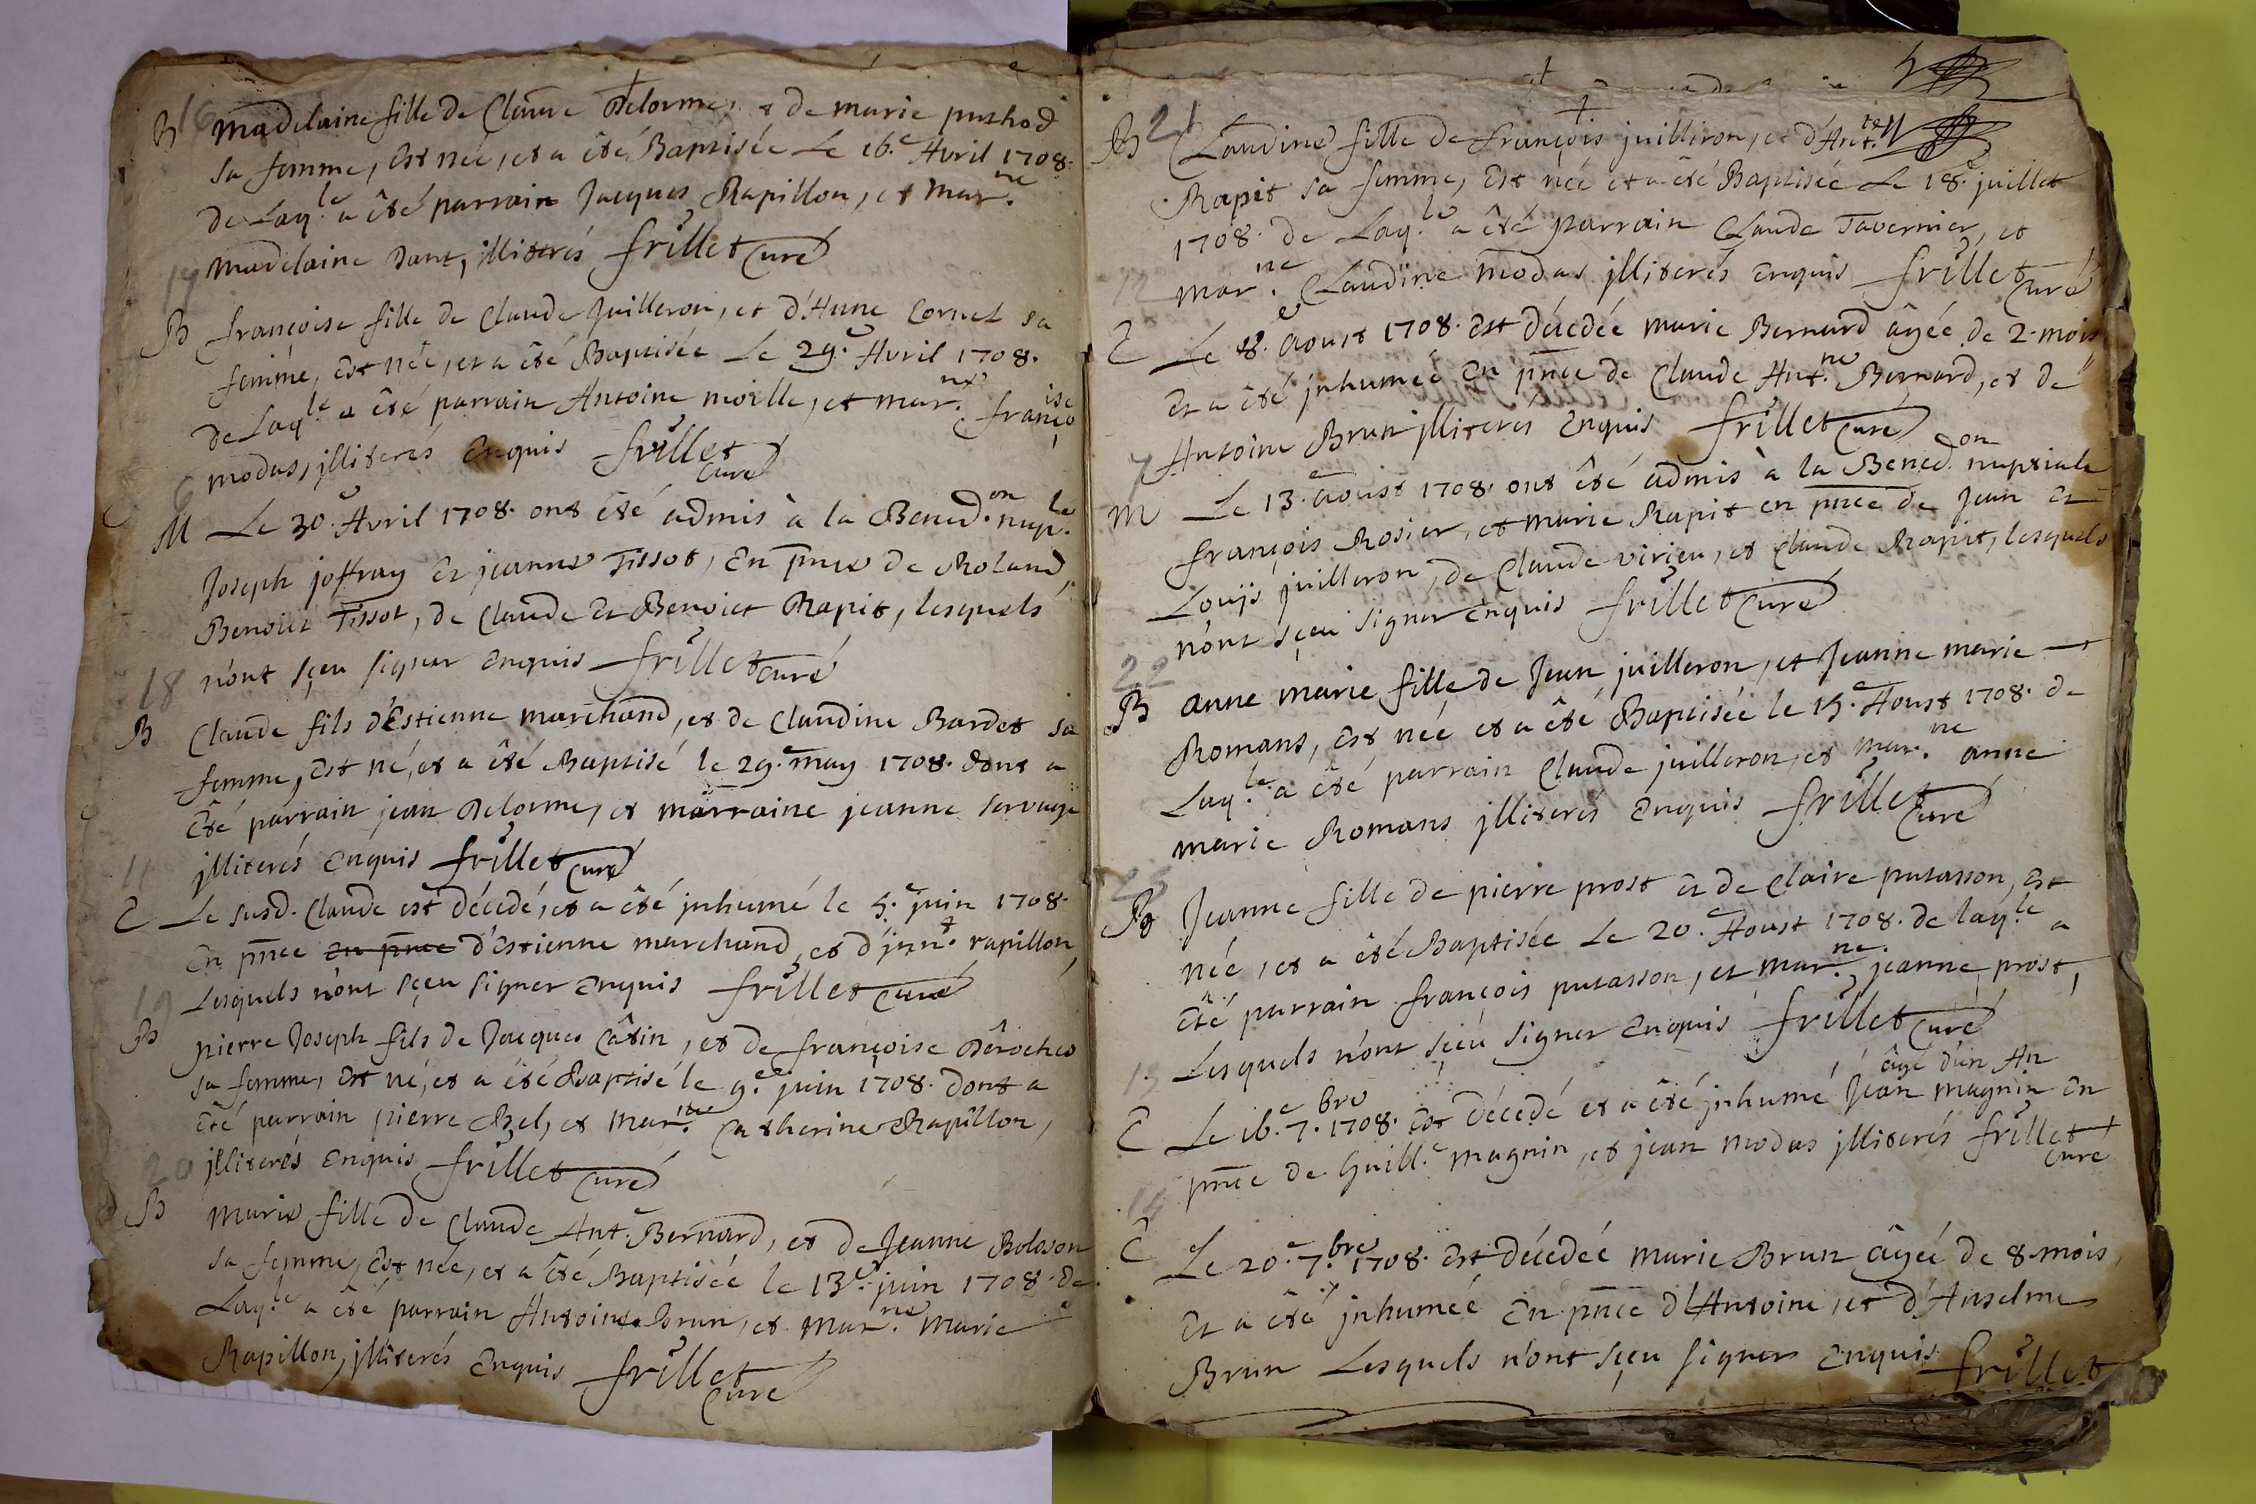 B 16 Madelaine fille de Claude Delorme, & de marie puthod
sa femme, Est née, et a été Baptisée Le 16.e Avril 1708.
de Laq.le a êté parrain Jacques Rapillon, et mar.ne
Madelaine Dant, illiterés frillet Curé
17
B françoise fille de Claude Juilleron, et d'Anne Cornet sa
femme, est née, et a été Baptisée Le 29.e Avril 1708.
de Laq.le a été parrain Antoine moille, et mar.ne françoise
modas, jlliterés Enquis frillet Curé
6
M Le 30.e Avril 1708. ont été admis à la Bened.on nup.le
Joseph joffray Et jeanne Tissot, En pnce de Roland,
Benoict Tissot, de Claude Et Benoict Rapit, lesquels
n'ont sçeu signer Enquis frillet curé
18
B Claude fils d'Estienne marchand, et de Claudine Bardet sa
femme, Est né, et a été Baptisé le 29.e may 1708. dont a
Eté parrain jean Delorme, et marraine jeanne servage
jlliterés Enquis frillet Curé
11
E Le susd. Claude est décedé, et a été jnhumé le 5.e juin 1708.
En pnce en pnce d'Estienne marchand, et d'jnn.t rapillon,
Lesquels n'ont sçeu signer Enquis frillet Curé
19
B pierre Joseph fils de Jacques Câtin, et de françoise Dêroches
sa femme, Est né, et a été Baptisé le 9.e juin 1708. Dont a
Eté parrain pierre Bel, et mar.ne Catherine Rapillon,
jlliterés Enquis frillet Curé
20
B Marie fille de Claude Ant.e Bernard, et de Jeanne Boloson
sa femme, Est née, et a été Baptisée le 13.e juin 1708. de
Laq.le a été parrain Antoine Brun, et mar.ne Marie
Rapillon, jlliterés Enquis frillet Curé
B 21 Claudine fille de françois juilliron, et d'Ant.te
Rapit sa femme, Est née et a été Baptisée Le 18.e juillet
1708. de Laq.le a été parrain Claude Tavernier, et
mar.ne Claudine modas jlliterés Enquis frillet Curé
12
E Le 8.e Aoust 1708. est décedée marie Bernard âgée de 2. mois
Et a été jnhumée En pnce de Claude Ant.ne Bernard, et de
Antoine Brun jlliterés Enquis frillet Curé
7
M Le 13.e Aoust 1708. ont été admis à la Bened.on nuptiale
françois Rosier, et marie Rapit en pnce de jean Et
Louis juilleron, de Claude virieu, et Claude Rapit, lesquels
n'ont sçeu signer Enquis frillet Curé
22
B Anne marie fille de Jean juilleron, et Jeanne marie
Romans, Est née et a êté Baptisée le 15.e Aoust 1708. de
Laq.le a été parrain Claude juilleron, et mar.ne anne
marie Romans jlliterés Enquis frillet Curé
23
B Jeanne fille de pierre prost Et de Claire putasson, Est
née, et a été Baptisée Le 20.e Aoust 1708. de laq.le a
Eté parrain françois putasson, et mar.ne jeanne prost,
Lesquels n'ont sçeu signer Enquis frillet Curé
13
âgé d'un An
E Le 16.e 7.bre 1708. Est décedé et a été jnhumé Jean magnin En
pnce de Guill.e magnin, et jean modas jlliterés frillet Curé
14
E Le 20.e 7.bre 1708. Est décedeé marie Brun âgée de 8. mois,
Et a été jnhumée En pnce d'Antoine, et d'Anselme
Brun Lesquels n'ont sçeu signer Enquis frillet